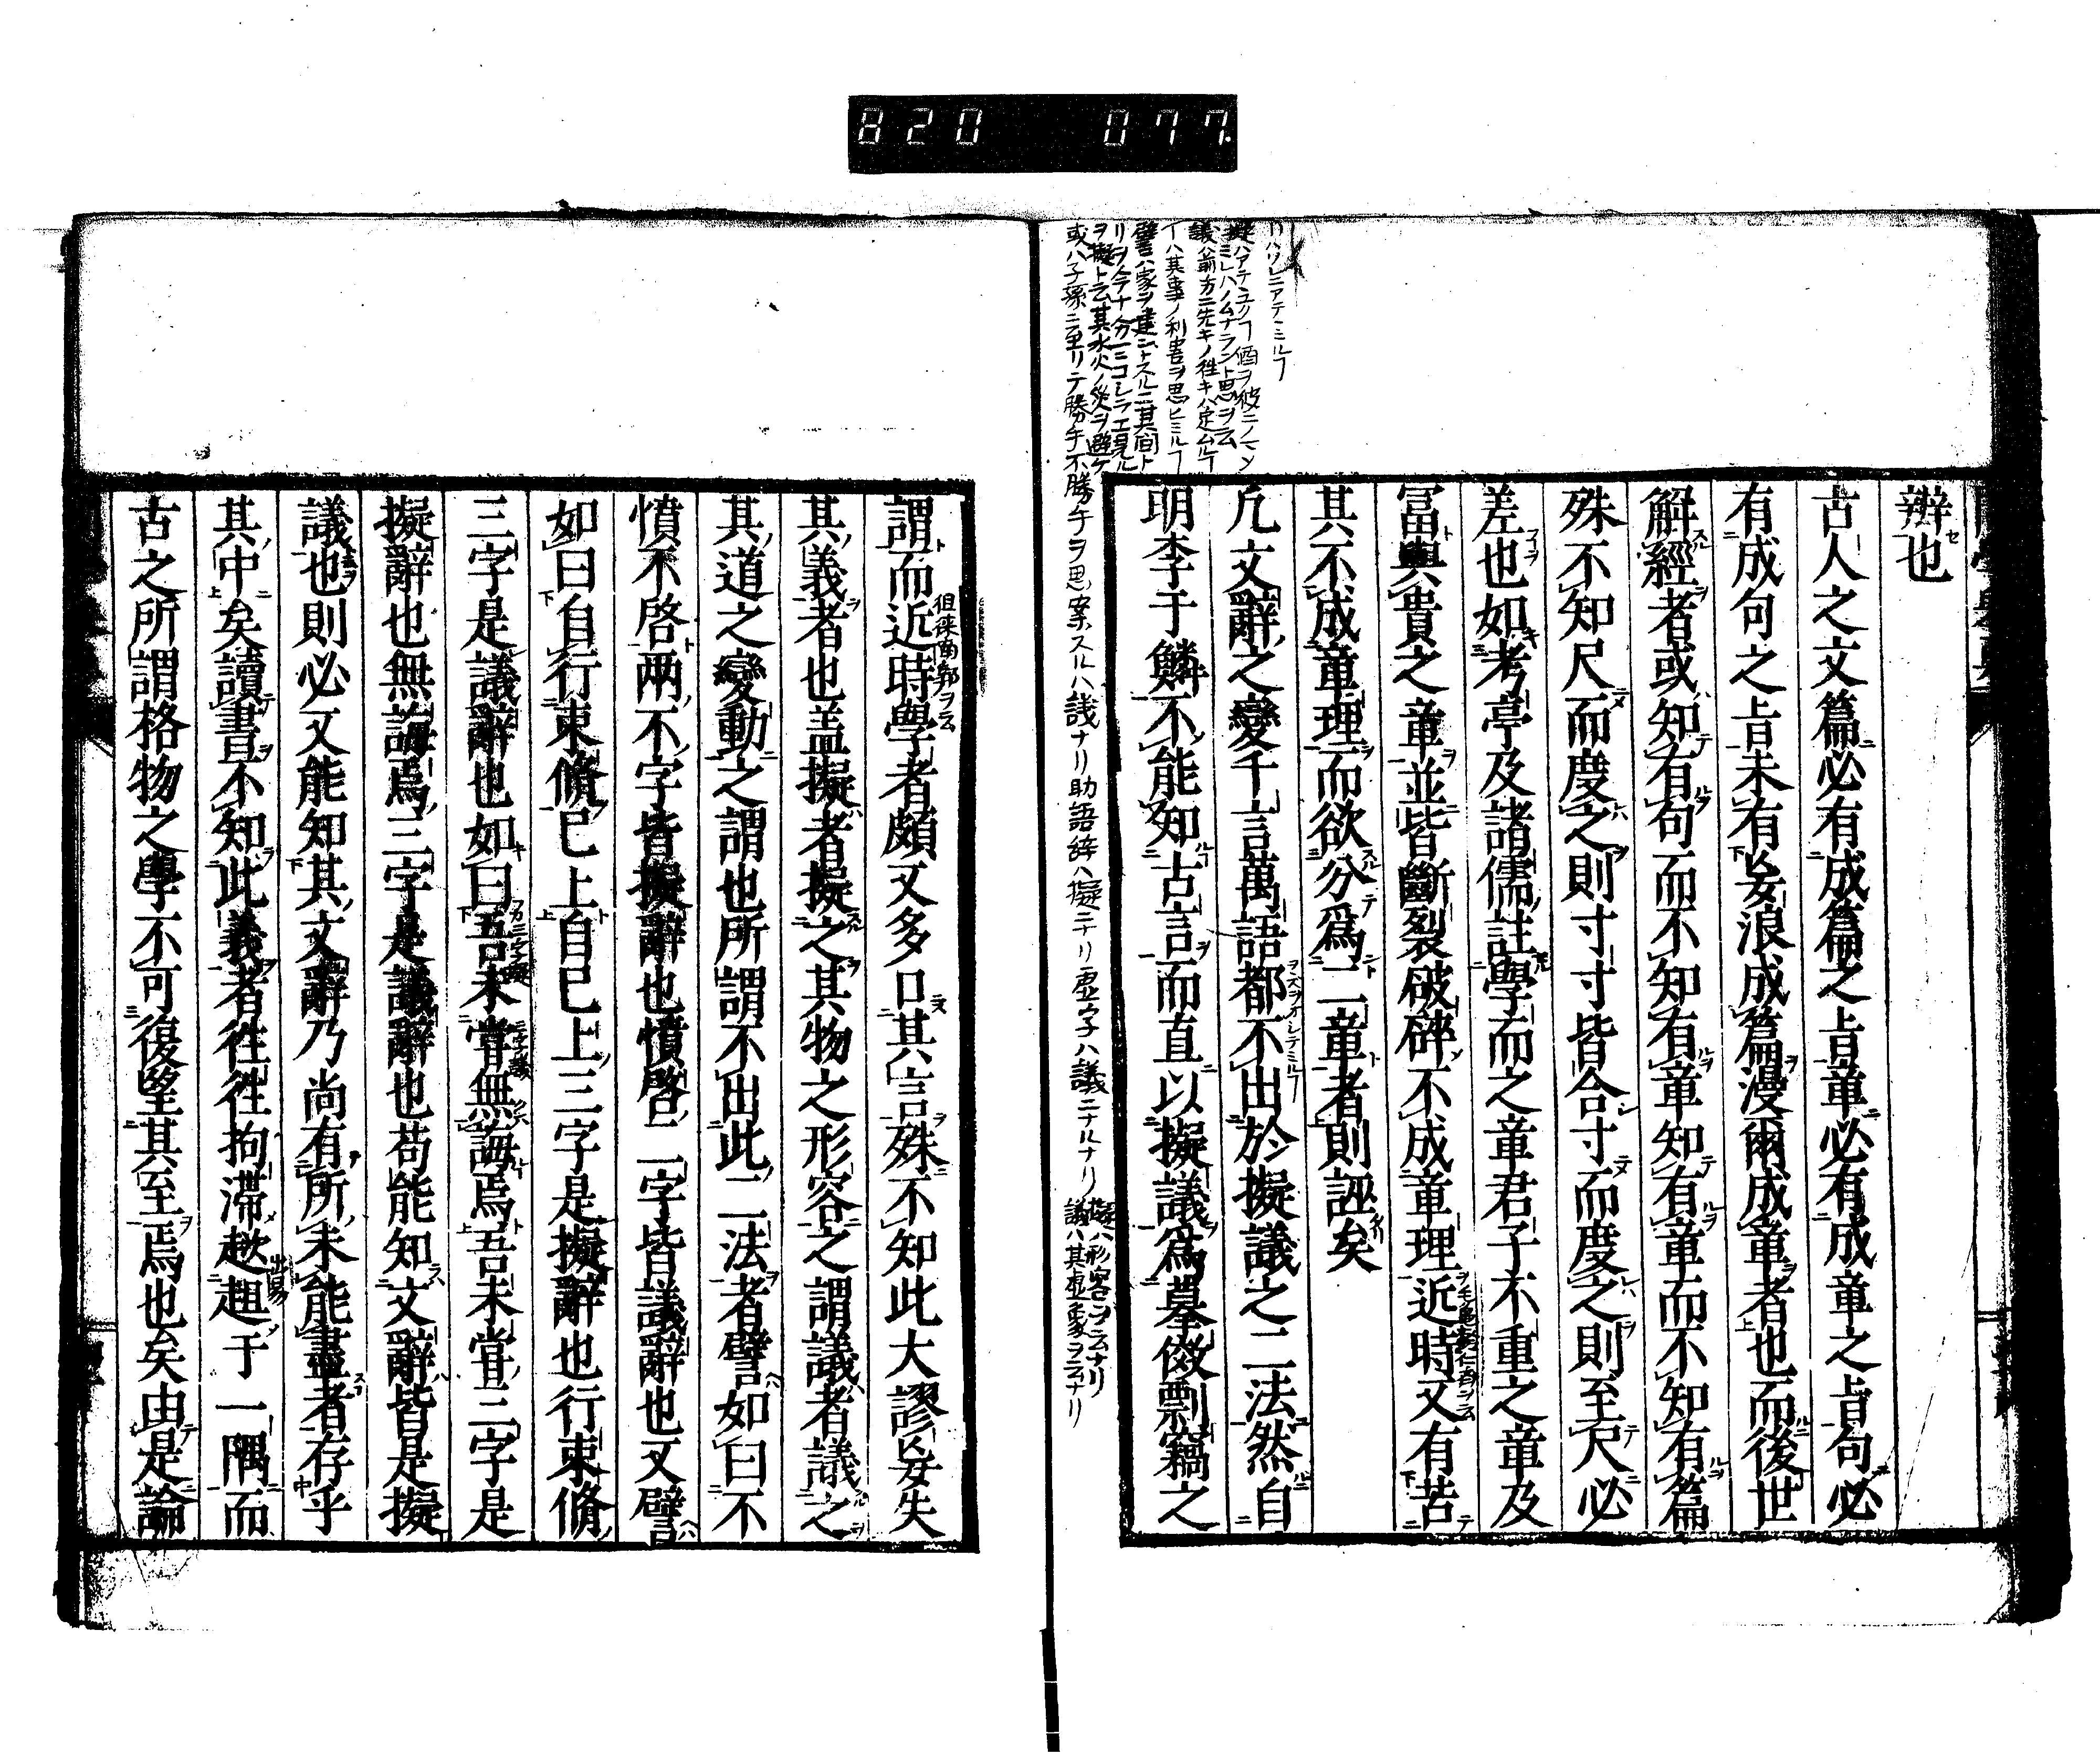 820 077
辨也
古人之文篇必有成篇之旨章必有成章之旨句必
有成句之旨未有妄浪成篇漫爾成章者也而後世
解經者或知有句而不知有章知有章而不知有篇
殊不知尺而度之則寸寸皆合寸而度之則至尺必
差也如考亭及諸儒註學而之章君子不重之章及
冨與貴之章並皆斷裂破碎不成章理近時又有苦
其不成章理而欲分爲二章者則誣矣
凢文辭之變千言萬語都不出於擬議之二法然自
明李于鱗不能知古言而直以擬議爲摹倣剽竊之
謂而近時學者頗又多口其言殊不知此大謬妄失
其義者也盖擬者擬之其物之形容之謂議者議之
其道之變動之謂也所謂不出此二法者譬如曰不
憤不啓兩不字皆擬辭也憤啓二字皆議辭也又譬
如曰自行束脩已上自已上三字是擬辭也行束脩
三字是議辭也如曰吾未嘗無誨焉吾未嘗三字是
擬辭也無誨焉三字是議辭也苟能知文辭皆是擬
議也則必又能知其文辭乃尚有所未能盡者存乎
其中矣讀書不知此義者徃徃拘滯趑趄于一隅而
古之所謂格物之學不可復望其至焉也矣由是論
徂徠南郭ヲ云
議ハ前方ニ先キノ徃キハ定ムルヿ
イハ其事ノ利害ヲ思ヒミルヿ
譬ハ家ヲ建ントスルニ其間ト
ヲ擬ト云其水火ノ災ヲ避ケ
或ハ子孫ニ至リテ勝手不勝手ヲ思案スルハ議ナリ助語辞ハ擬ニナリ虚字ハ議ニナルナリ
擬ハ形容ヲ云ナリ
議ハ其虚象ヲ云ナリ